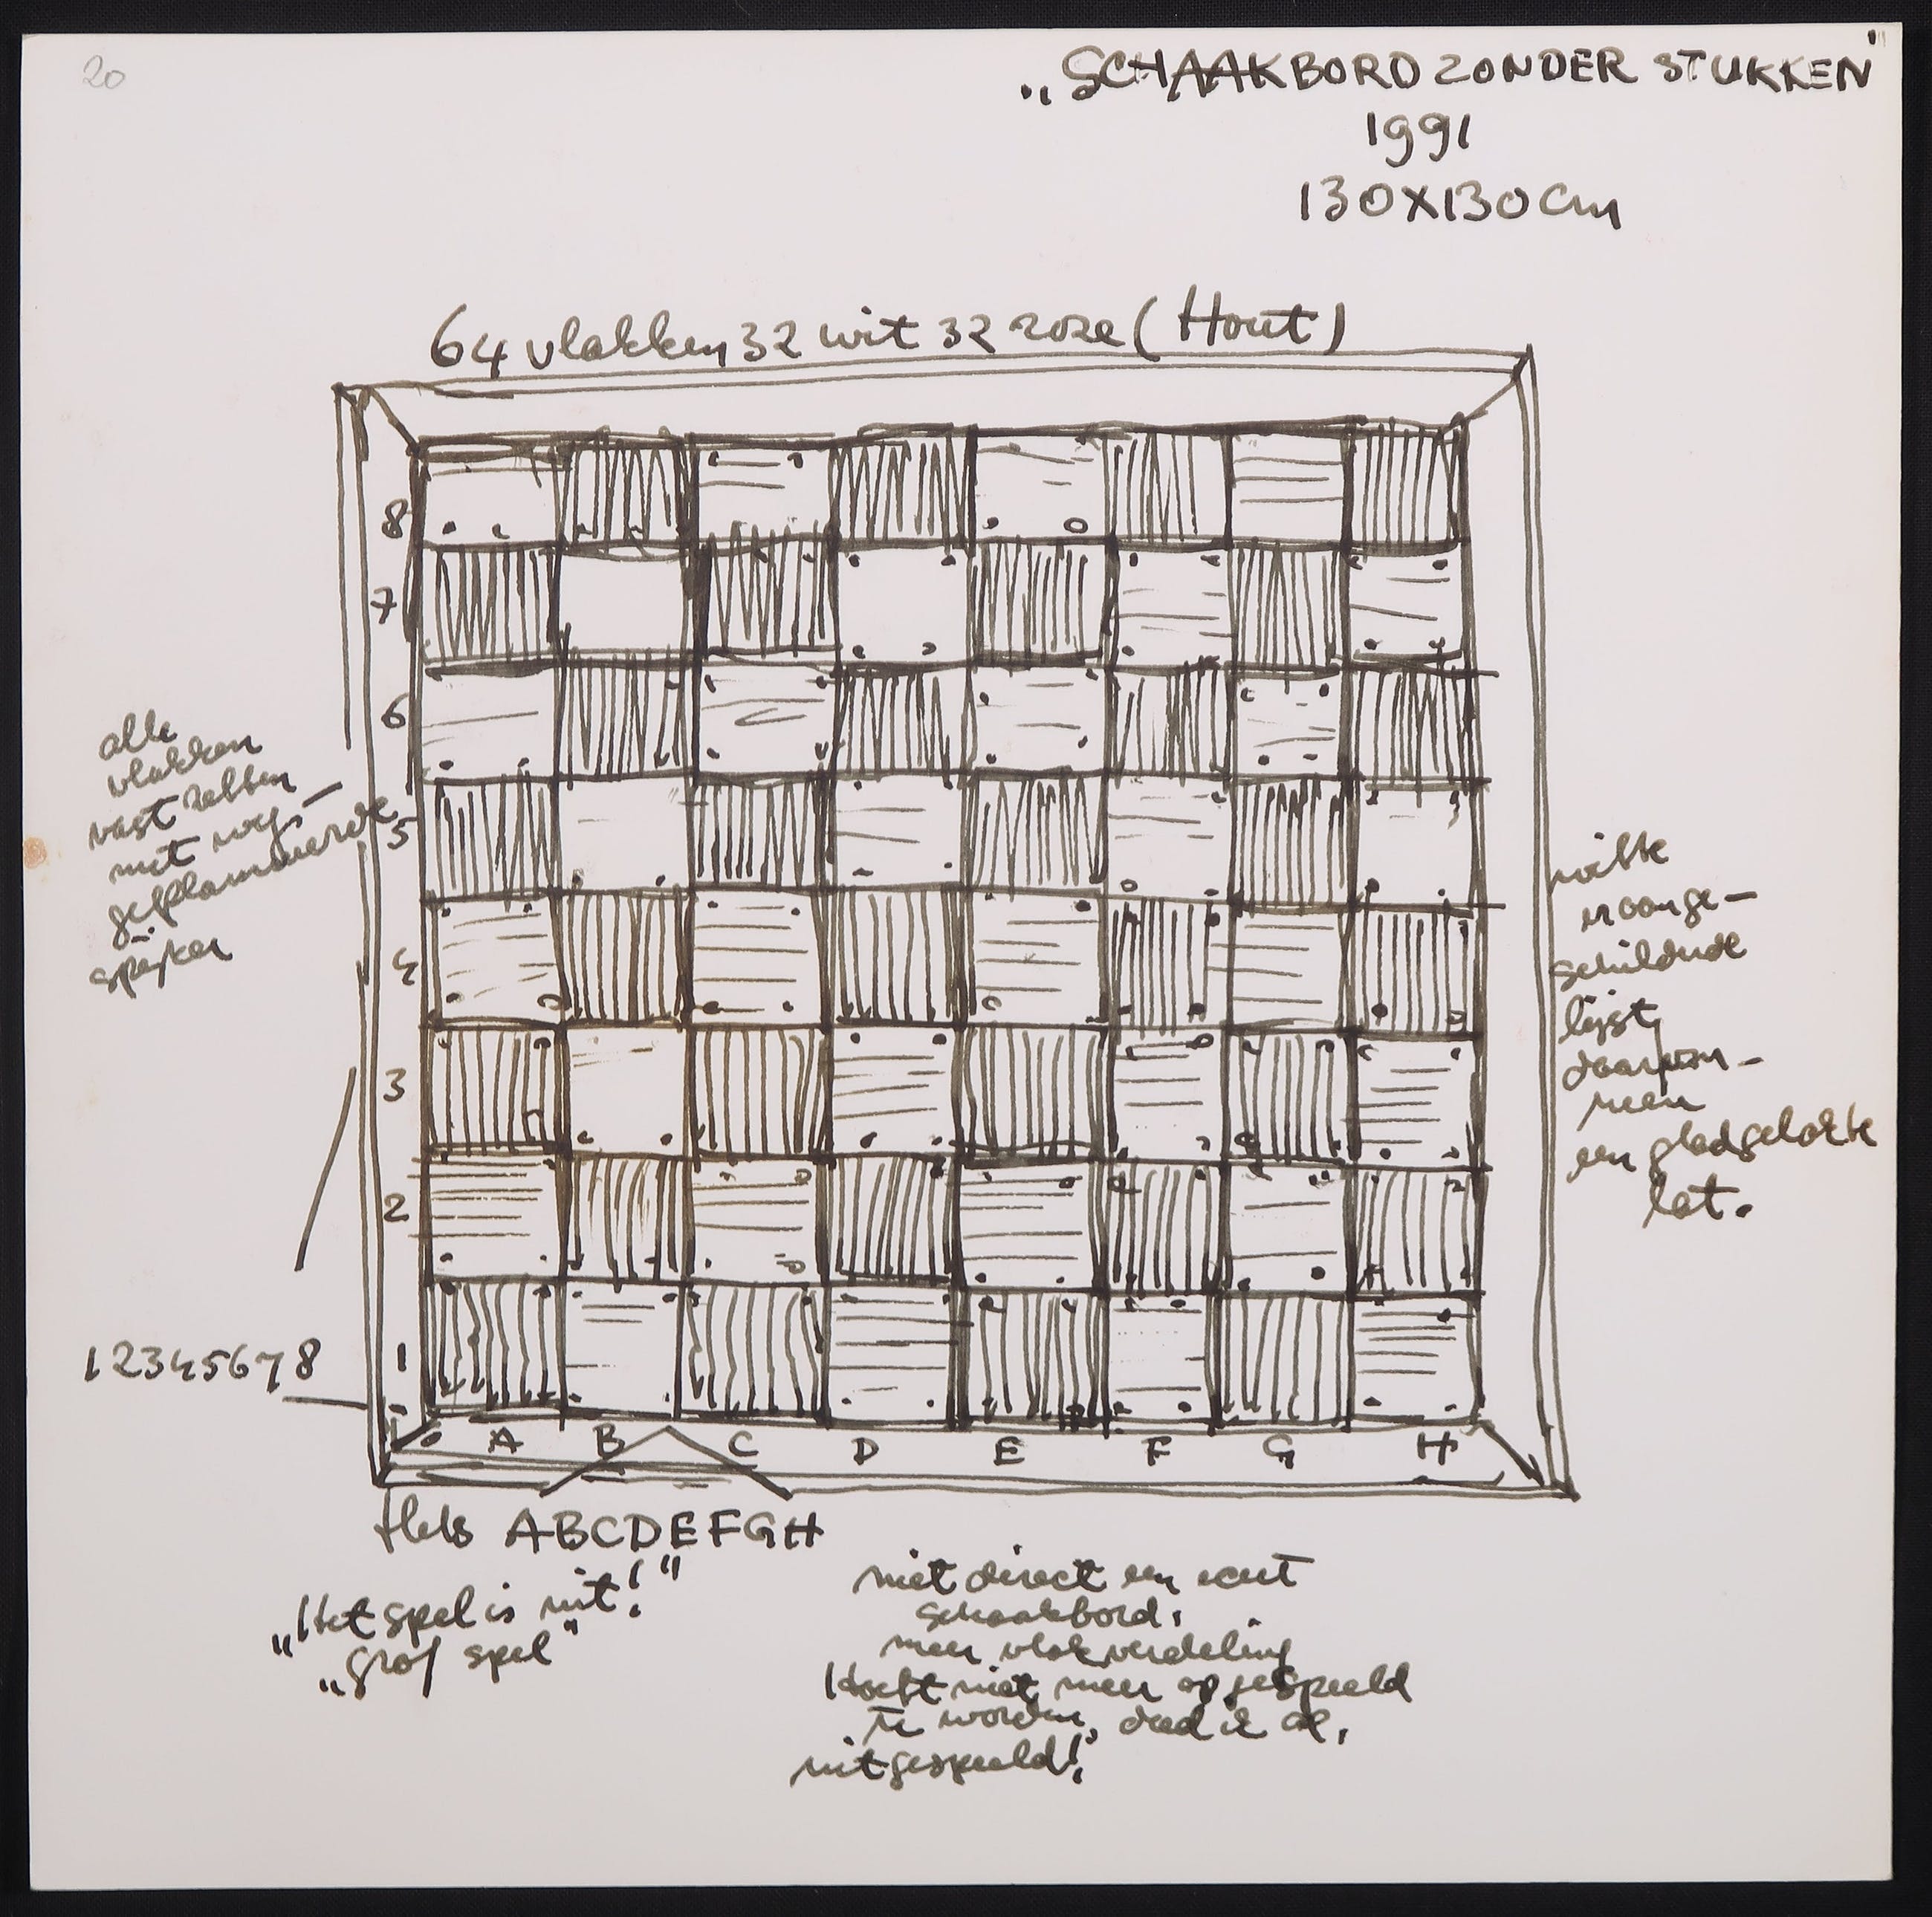 20
„SCHAAKBORD ZONDER STUKKEN"
1991
130X130 cm
64 vlakken 32 wit 32 roze (Hout)
8
7
6
5
4
3
2
1
alle
vlakken
vast zetten
met
spijker
witte
schilderde
lijst
een gladgelakte
lat.
12345678
A B C D E F G H
ABCDEFGH
„Het spel is uit!"
„grof spel"
niet direct een echt
schaakbord,
meer vlakverdeling
Hoeft niet meer op gespeeld
te worden,
uitgespeeld!